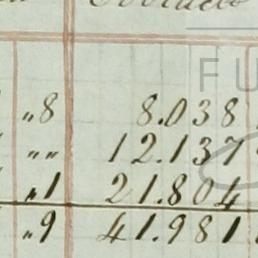 „8 8.038
„„ 12.137
„1 21.804
„9 41.981
FU